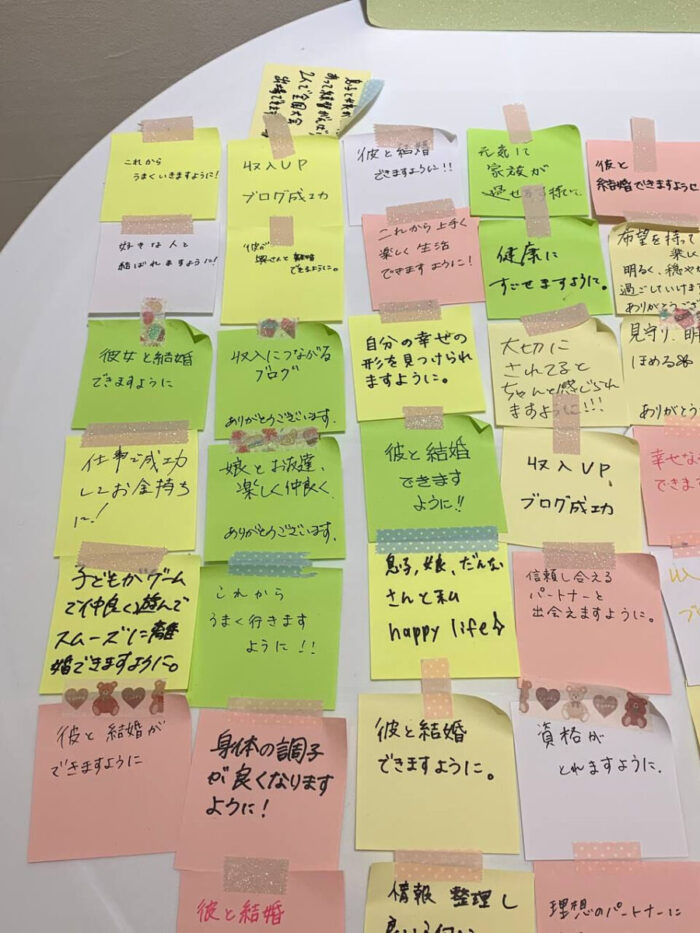 これから
うまくいきますように!
収入UP
ブログ成功
彼と結婚
できますように!!
元気に
家族が
彼と
結婚できますように
好きな人と
結ばれますように!
彼が
離婚
できるように。
これから上手く
楽しく生活
できますように!
健康に
すごせますように。
希望を持って
楽し
明るく、穏や
過ごしていけます
ありがとうござ
彼女と結婚
できますように
収入につながる
ブログ
ありがとうございます。
自分の幸せの
形を見つけられ
ますように。
大切に
されてると
ちゃんと感じられ
ますように!!!
見守り、明
ほめる
ありがとう
仕事で成功
してお金持ち
に!
娘とお友達、
楽しく仲良く、
ありがとうございます。
彼と結婚
できます
ように!!
収入UP、
ブログ成功
幸せな
できま
子どもがゲーム
で仲良く遊んで
スムーズに離
婚できますように。
これから
うまく行きます
ように!!
息子、娘、だんな
さんと私
happy life
信頼し合える
パートナーと
出会えますように。
収入
ブ
彼と結婚が
できますように
身体の調子
が良くなります
ように!
彼と結婚
できますように。
資格が
とれますように。
彼と結婚
情報 整理し
理想のパートナーに